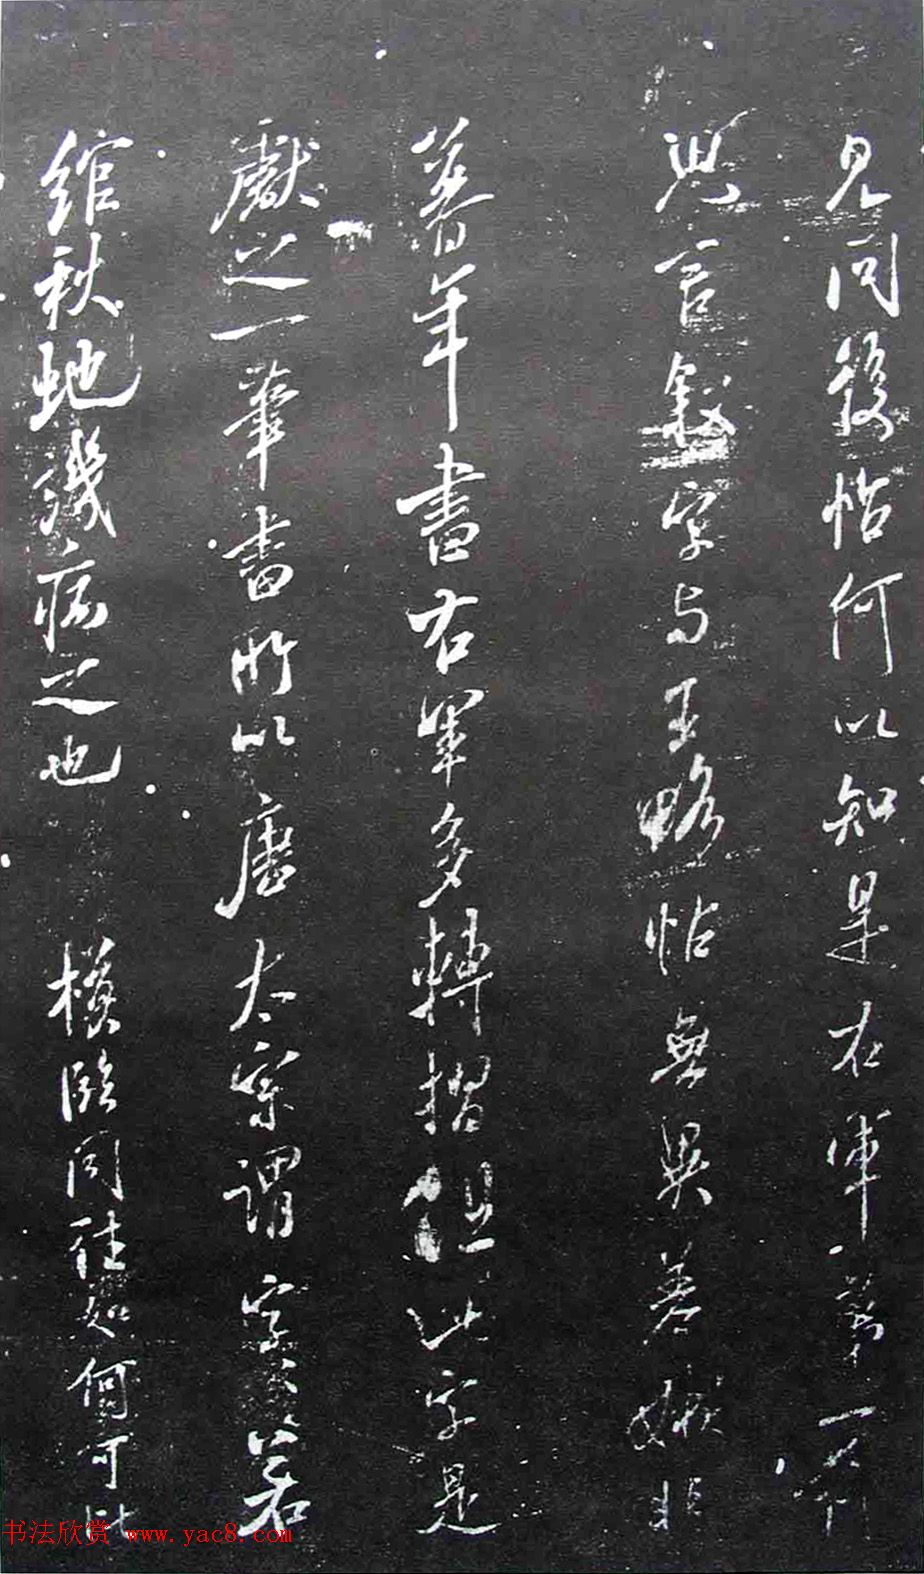 見同後帖何以知是右軍第一帖
與言敘字与王略帖無異若嫩非
暮年書右軍多轉摺但此字是
獻之一筆書所以唐太宗謂字字若
綰秋虵譏病之也 模臨同往如何可比
书法欣赏 www.yac8.com